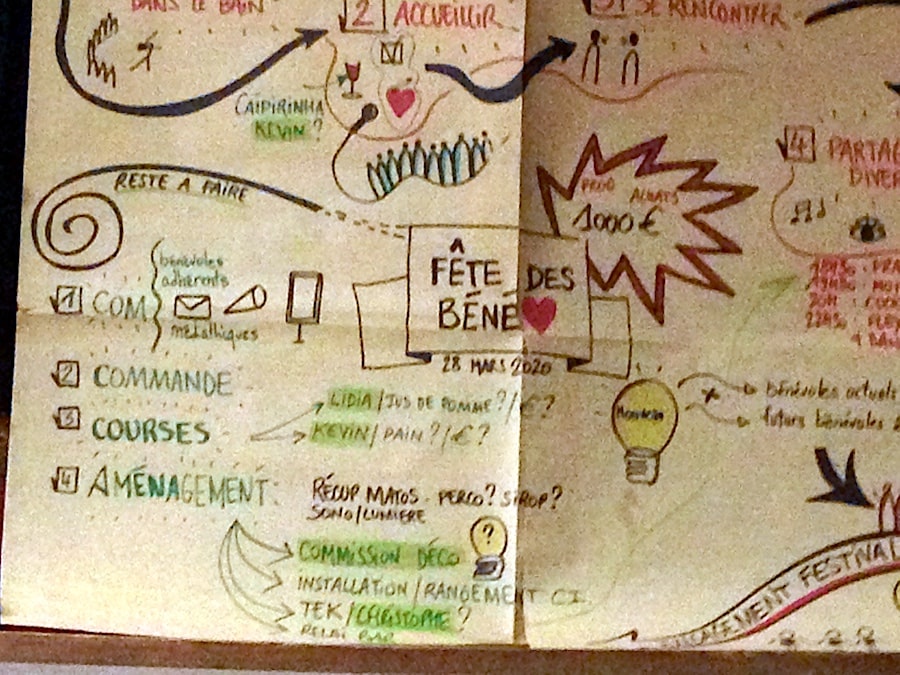 DANS LE BAIN
2 ACCUEILLIR
3 SE RENCONTRER
CAÏPIRINHA
KEVIN ?
RESTE A FAIRE
PROG
ACHATS
1000 €
4 PARTAG
DIVER
bénévoles
adhérents
1 COM
métalliques
FÊTE DES
BÉNÉ
28 MARS 2020
20H
22H30
2 COMMANDE
3 COURSES
LIDIA / JUS DE POMME ? / € ?
KEVIN / PAIN ? / € ?
bénévoles actuels
futurs bénévoles
4 AMÉNAGEMENT :
RÉCUP MATOS - PERCO ? SIROP ?
SONO/LUMIERE
?
COMMISSION DÉCO
INSTALLATION / RANGEMENT CI
TEK / CHRISTOPHE ?
FESTIVAL